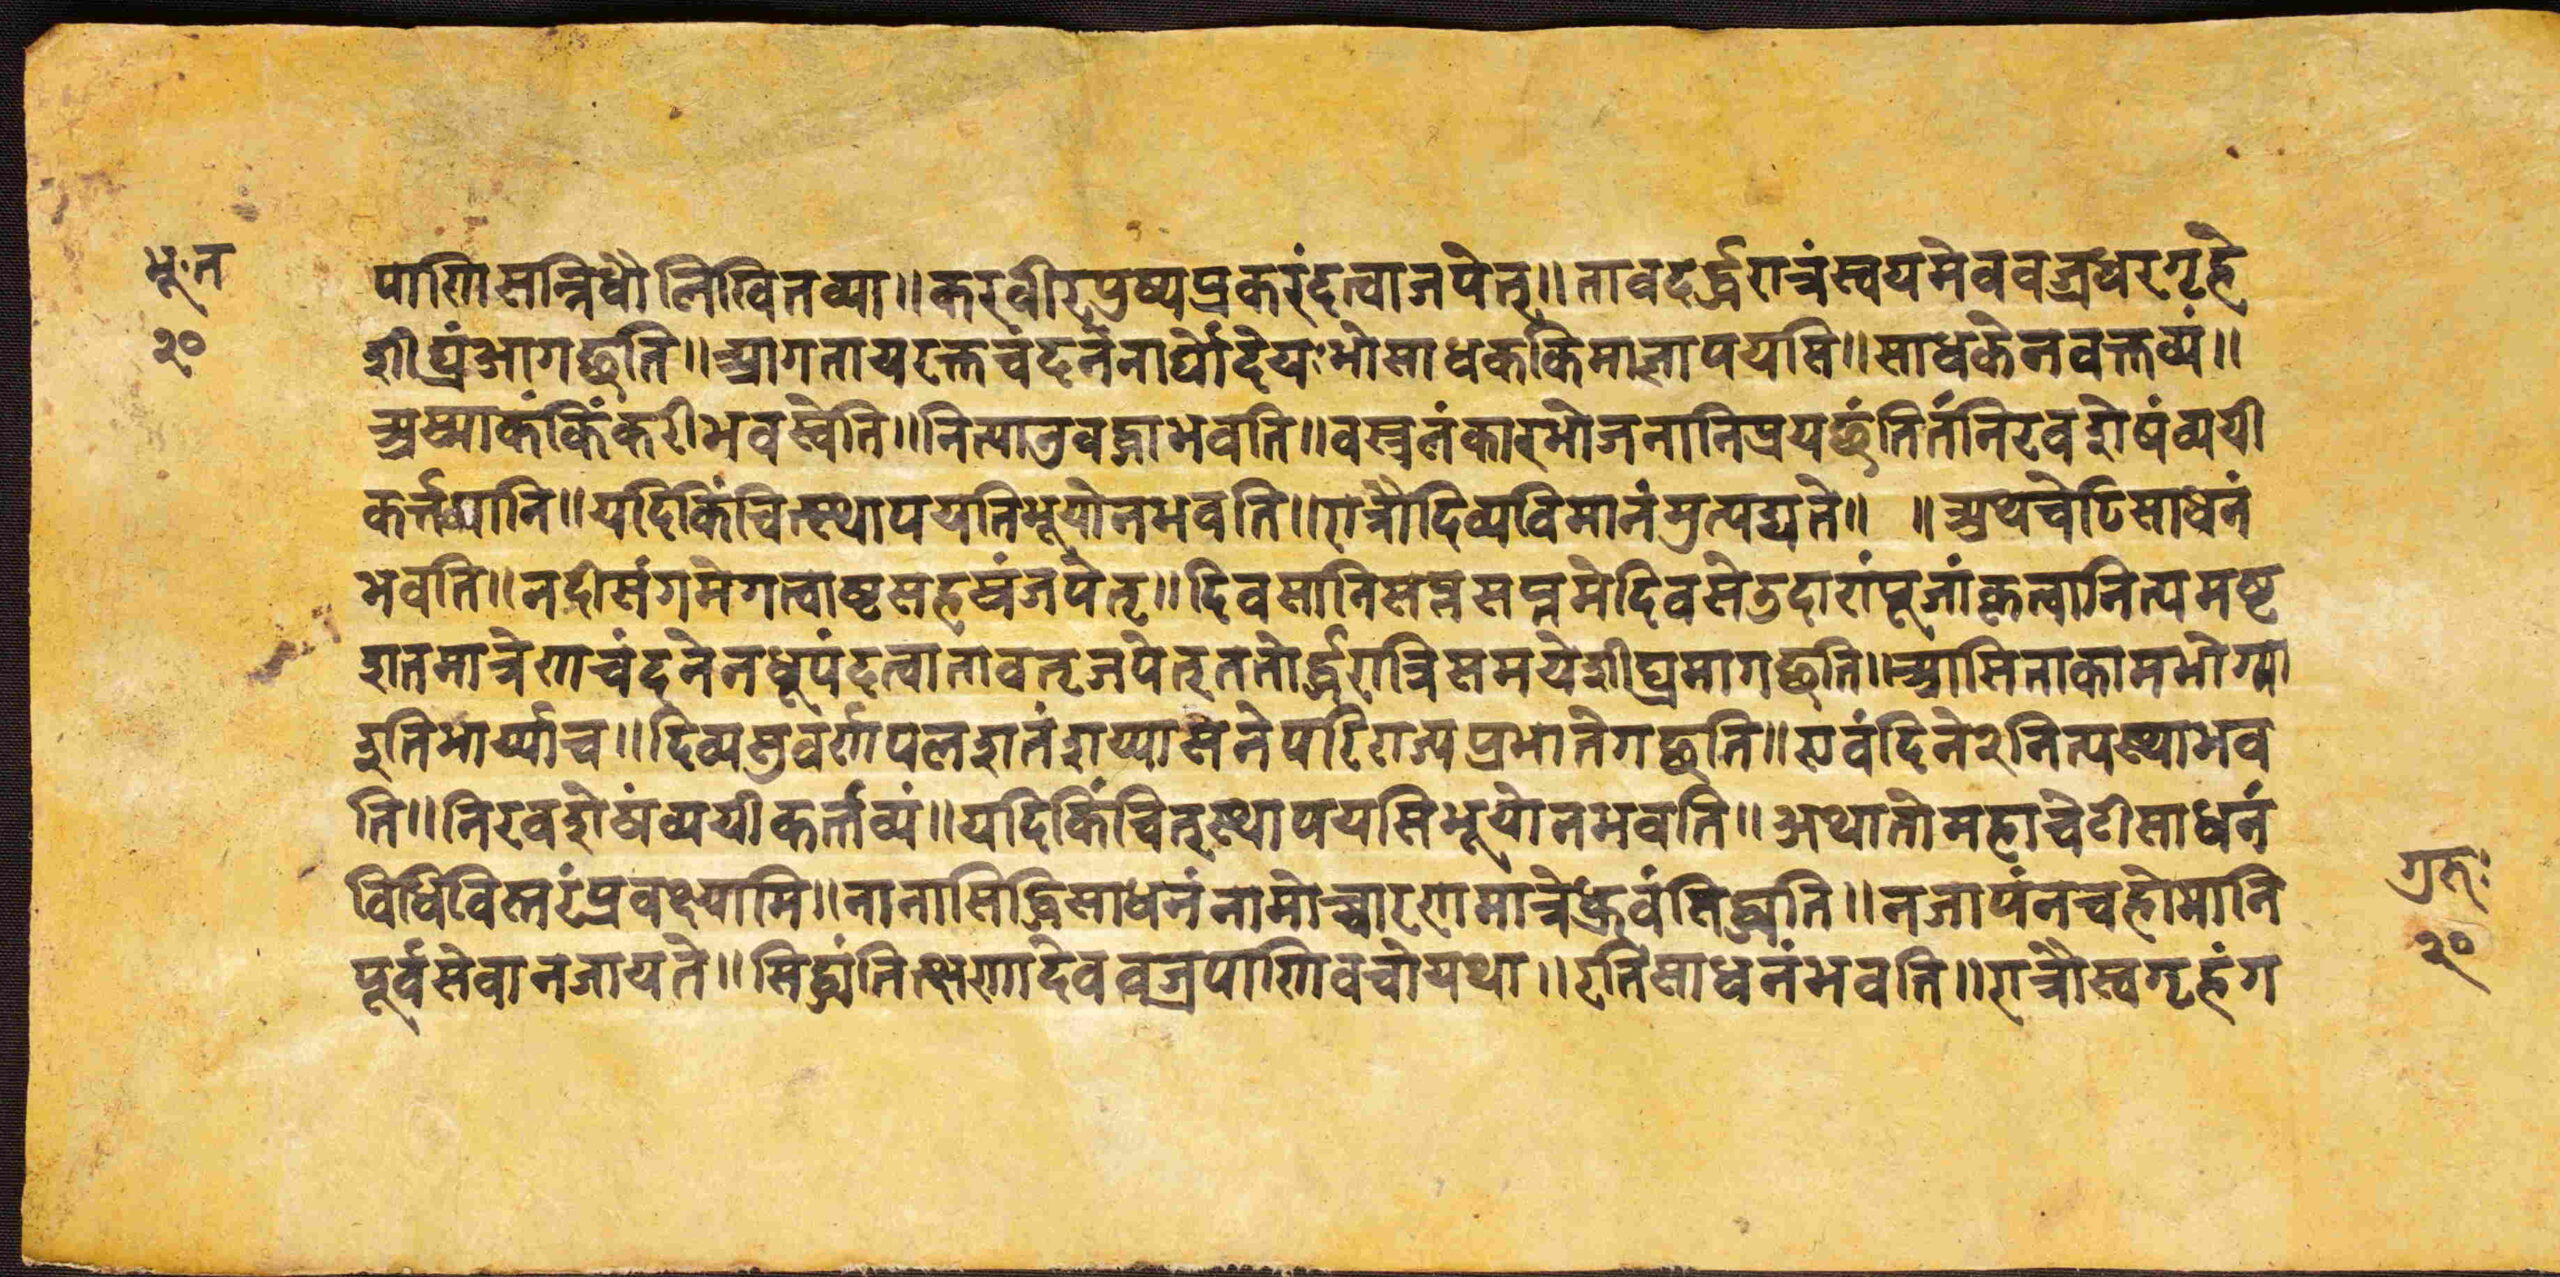 भू॰त
२०
पाणिसन्निधौलिखितव्या॥करवीरपुष्पप्रकरंदत्वाजपेत्॥तावदर्द्धरात्रंस्वयमेववज्रधरगृहे
शीघ्रंआगछति॥आगतायरक्तचंदनेनार्घ्योदेयःभोसाधककिमाज्ञापयसि॥साधकेनवक्तव्यं॥
अस्माकंकिंकरीभवस्वेति॥नित्यानुवद्धाभवति॥वस्त्रलंकारभोजनानिप्रयछंतितंनिरवशेषंव्ययी
कर्त्तव्यानि॥यदिकिंचित्स्थापयतिभूयोनभवति॥रात्रौदिव्यविमानंमुत्पद्यते॥ ॥अथचेटिसाधनं
भवति॥नदीसंगमेगत्वाष्टसहस्रंजपेत्॥दिवसानिसप्तसप्तमेदिवसेतुदारांपूजांकृत्वानित्यमष्ट
शतमात्रेणचंदनेनधूपंदत्वातावत्जपेत्ततोर्द्धरात्रिसमयेशीघ्रमागछति॥आसिताकामभोग्या
इतिभार्य्याच॥दिव्यसुवर्णपलशतंशय्यासनेपरित्यज्यप्रभातेगछति॥एवंदिने२नित्यस्थाभव
ति॥निरवशेषंव्ययीकर्त्तव्यं॥यदिकिंचित्स्थापयसिभूयोनभवति॥अथातोमहाचेटीसाधनं
विधिविस्तरंप्रवक्ष्यामि॥नानासिद्धिसाधनंनामोच्चारणमात्रेध्रुवंसिद्ध्यति॥नजापंनचहोमानि
पूर्वसेवानजायते॥सिद्ध्यंतितत्क्षणादेववज्रपाणिवचोयथा॥इतिसाधनंभवति॥रात्रौस्वगृहंग
गुरुः
२०